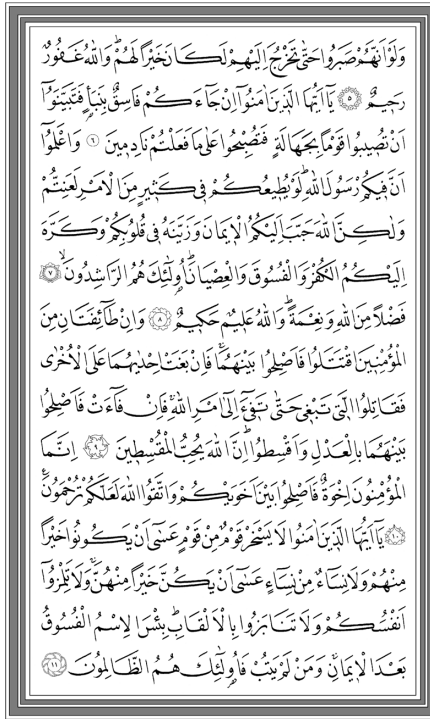 وَلَوْ اَنَّهُمْ صَبَرُوا حَتّٰى تَخْرُجَ اِلَيْهِمْ لَكَانَ خَيْرًا لَهُمْۜ وَاللّٰهُ غَفُورٌ
رَح۪يمٌ ﴿٥﴾ يَٓا اَيُّهَا الَّذ۪ينَ اٰمَنُٓوا اِنْ جَٓاءَكُمْ فَاسِقٌ بِنَبَأٍ فَتَبَيَّنُٓوا
اَنْ تُص۪يبُوا قَوْمًا بِجَهَالَةٍ فَتُصْبِحُوا عَلٰى مَا فَعَلْتُمْ نَادِم۪ينَ ﴿٦﴾ وَاعْلَمُٓوا
اَنَّ ف۪يكُمْ رَسُولَ اللّٰهِۜ لَوْ يُط۪يعُكُمْ ف۪ي كَث۪يرٍ مِنَ الْاَمْرِ لَعَنِتُّمْ
وَلٰكِنَّ اللّٰهَ حَبَّبَ اِلَيْكُمُ الْا۪يمَانَ وَزَيَّنَهُ ف۪ي قُلُوبِكُمْ وَكَرَّهَ
اِلَيْكُمُ الْكُفْرَ وَالْفُسُوقَ وَالْعِصْيَانَۜ اُو۬لٰٓئِكَ هُمُ الرَّاشِدُونَۙ ﴿٧﴾
فَضْلًا مِنَ اللّٰهِ وَنِعْمَةًۜ وَاللّٰهُ عَل۪يمٌ حَك۪يمٌ ﴿٨﴾ وَاِنْ طَٓائِفَتَانِ مِنَ
الْمُؤْمِن۪ينَ اقْتَتَلُوا فَاَصْلِحُوا بَيْنَهُمَاۚ فَاِنْ بَغَتْ اِحْدٰيهُمَا عَلَى الْاُخْرٰى
فَقَاتِلُوا الَّت۪ي تَبْغ۪ي حَتّٰى تَف۪ٓيءَ اِلٰٓى اَمْرِ اللّٰهِۚ فَاِنْ فَٓاءَتْ فَاَصْلِحُوا
بَيْنَهُمَا بِالْعَدْلِ وَاَقْسِطُواۜ اِنَّ اللّٰهَ يُحِبُّ الْمُقْسِط۪ينَ ﴿٩﴾ اِنَّمَا
الْمُؤْمِنُونَ اِخْوَةٌ فَاَصْلِحُوا بَيْنَ اَخَوَيْكُمْ وَاتَّقُوا اللّٰهَ لَعَلَّكُمْ تُرْحَمُونَ۟
﴿١٠﴾ يَٓا اَيُّهَا الَّذ۪ينَ اٰمَنُوا لَا يَسْخَرْ قَوْمٌ مِنْ قَوْمٍ عَسٰٓى اَنْ يَكُونُوا خَيْرًا
مِنْهُمْ وَلَا نِسَٓاءٌ مِنْ نِسَٓاءٍ عَسٰٓى اَنْ يَكُنَّ خَيْرًا مِنْهُنَّۚ وَلَا تَلْمِزُٓوا
اَنْفُسَكُمْ وَلَا تَنَابَزُوا بِالْاَلْقَابِۜ بِئْسَ الِاسْمُ الْفُسُوقُ
بَعْدَ الْا۪يمَانِۚ وَمَنْ لَمْ يَتُبْ فَاُو۬لٰٓئِكَ هُمُ الظَّالِمُونَ ﴿١١﴾